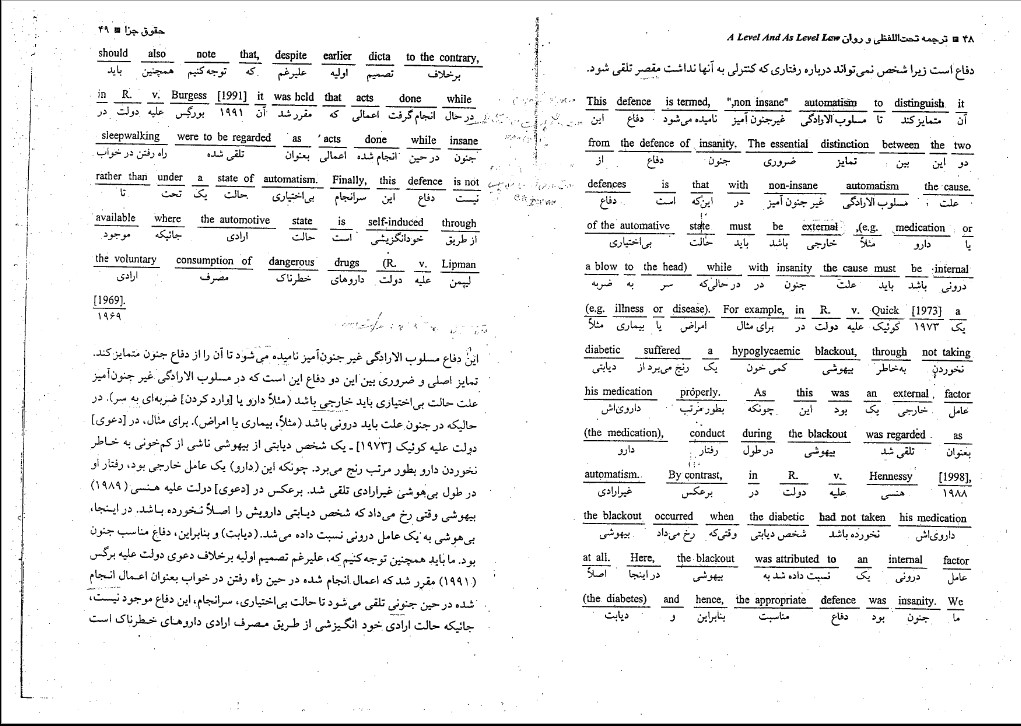 ۴۸ ■ ترجمه تحت‌اللفظی و روان A Level And As Level Law
دفاع است زیرا شخص نمی‌تواند درباره رفتاری که کنترلی به آنها نداشت مقصر تلقی شود.
This defence is termed, ",non insane" automatism to distinguish it
آن متمایز کند تا مسلوب الارادگی غیرجنون آمیز نامیده می‌شود دفاع این
from the defence of insanity. The essential distinction between the two
دو این بین تمایز ضروری جنون دفاع از
defences is that with non-insane automatism the cause.
علت مسلوب الارادگی غیر جنون آمیز در این‌که است دفاع
of the automative state must be external ,(e.g. medication or
یا دارو مثلاً خارجی باشد باید حالت بی‌اختیاری
a blow to the head) while with insanity the cause must be internal
درونی باشد باید علت جنون در در حالی‌که سر به ضربه
(e.g. illness or disease). For example, in R. v. Quick [1973] a
یک ۱۹۷۳ کوئیک علیه دولت در برای مثال امراض یا بیماری مثلاً
diabetic suffered a hypoglycaemic blackout, through not taking
نخوردن به‌خاطر بیهوشی کمی خون یک رنج می‌برد از دیابتی
his medication properly. As this was an external factor
عامل خارجی یک بود این چونکه بطور مرتب داروی‌اش
(the medication), conduct during the blackout was regarded as
بعنوان تلقی شد بیهوشی در طول رفتار دارو
automatism. By contrast, in R. v. Hennessy [1998],
۱۹۸۸ هنسی علیه دولت در برعکس غیرارادی
the blackout occurred when the diabetic had not taken his medication
داروی‌اش نخورده باشد شخص دیابتی وقتی‌که رخ می‌داد بیهوشی
at all. Here, the blackout was attributed to an internal factor
عامل درونی یک نسبت داده شد به بیهوشی در اینجا اصلاً
(the diabetes) and hence, the appropriate defence was insanity. We
ما جنون بود دفاع مناسبت بنابراین و دیابت
حقوق جزا ■ ۴۹
should also note that, despite earlier dicta to the contrary,
برخلاف تصمیم اولیه علیرغم که توجه کنیم همچنین باید
in R. v. Burgess [1991] it was held that acts done while
در حال انجام گرفت اعمالی که مقرر شد آن ۱۹۹۱ بورگس علیه دولت در
sleepwalking were to be regarded as acts done while insane
جنون در حین انجام شده اعمالی بعنوان تلقی شده راه رفتن در خواب
rather than under a state of automatism. Finally, this defence is not
نیست دفاع این سرانجام بی‌اختیاری حالت یک تحت تا
available where the automotive state is self-induced through
از طریق خودانگزیشی است حالت ارادی جائیکه موجود
the voluntary consumption of dangerous drugs (R. v. Lipman
لیپمن علیه دولت داروهای خطرناک مصرف ارادی
[1969].
۱۹۶۹
این دفاع مسلوب الارادگی غیر جنون‌آمیز نامیده می‌شود تا آن را از دفاع جنون متمایز کند.
تمایز اصلی و ضروری بین این دو دفاع این است که در مسلوب الارادگی غیر جنون‌آمیز
علت حالت بی‌اختیاری باید خارجی باشد (مثلاً دارو یا [وارد کردن] ضربه‌ای به سر). در
حالیکه در جنون علت باید درونی باشد (مثلاً، بیماری یا امراض). برای مثال، در [دعوی]
دولت علیه کوئیک [۱۹۷۳] ـ یک شخص دیابتی از بیهوشی ناشی از کم‌خونی به خاطر
نخوردن دارو بطور مرتب رنج می‌برد. چونکه این (دارو) یک عامل خارجی بود، رفتار او
در طول بی‌هوشی غیرارادی تلقی شد. برعکس در [دعوی] دولت علیه هنسی (۱۹۸۹)
بیهوشی وقتی رخ می‌داد که شخص دیابتی دارویش را اصلاً نخورده باشد. در اینجا،
بی‌هوشی به یک عامل درونی نسبت داده می‌شد. (دیابت) و بنابراین، دفاع مناسب جنون
بود. ما باید همچنین توجه کنیم که، علیرغم تصمیم اولیه برخلاف دعوی دولت علیه برگس
(۱۹۹۱) مقرر شد که اعمال انجام شده در حین راه رفتن در خواب بعنوان اعمال انجام
شده در حین جنونی تلقی می‌شود تا حالت بی‌اختیاری، سرانجام، این دفاع موجود نیست،
جائیکه حالت ارادی خود انگیزشی از طریق مصرف ارادی داروهای خطرناک است